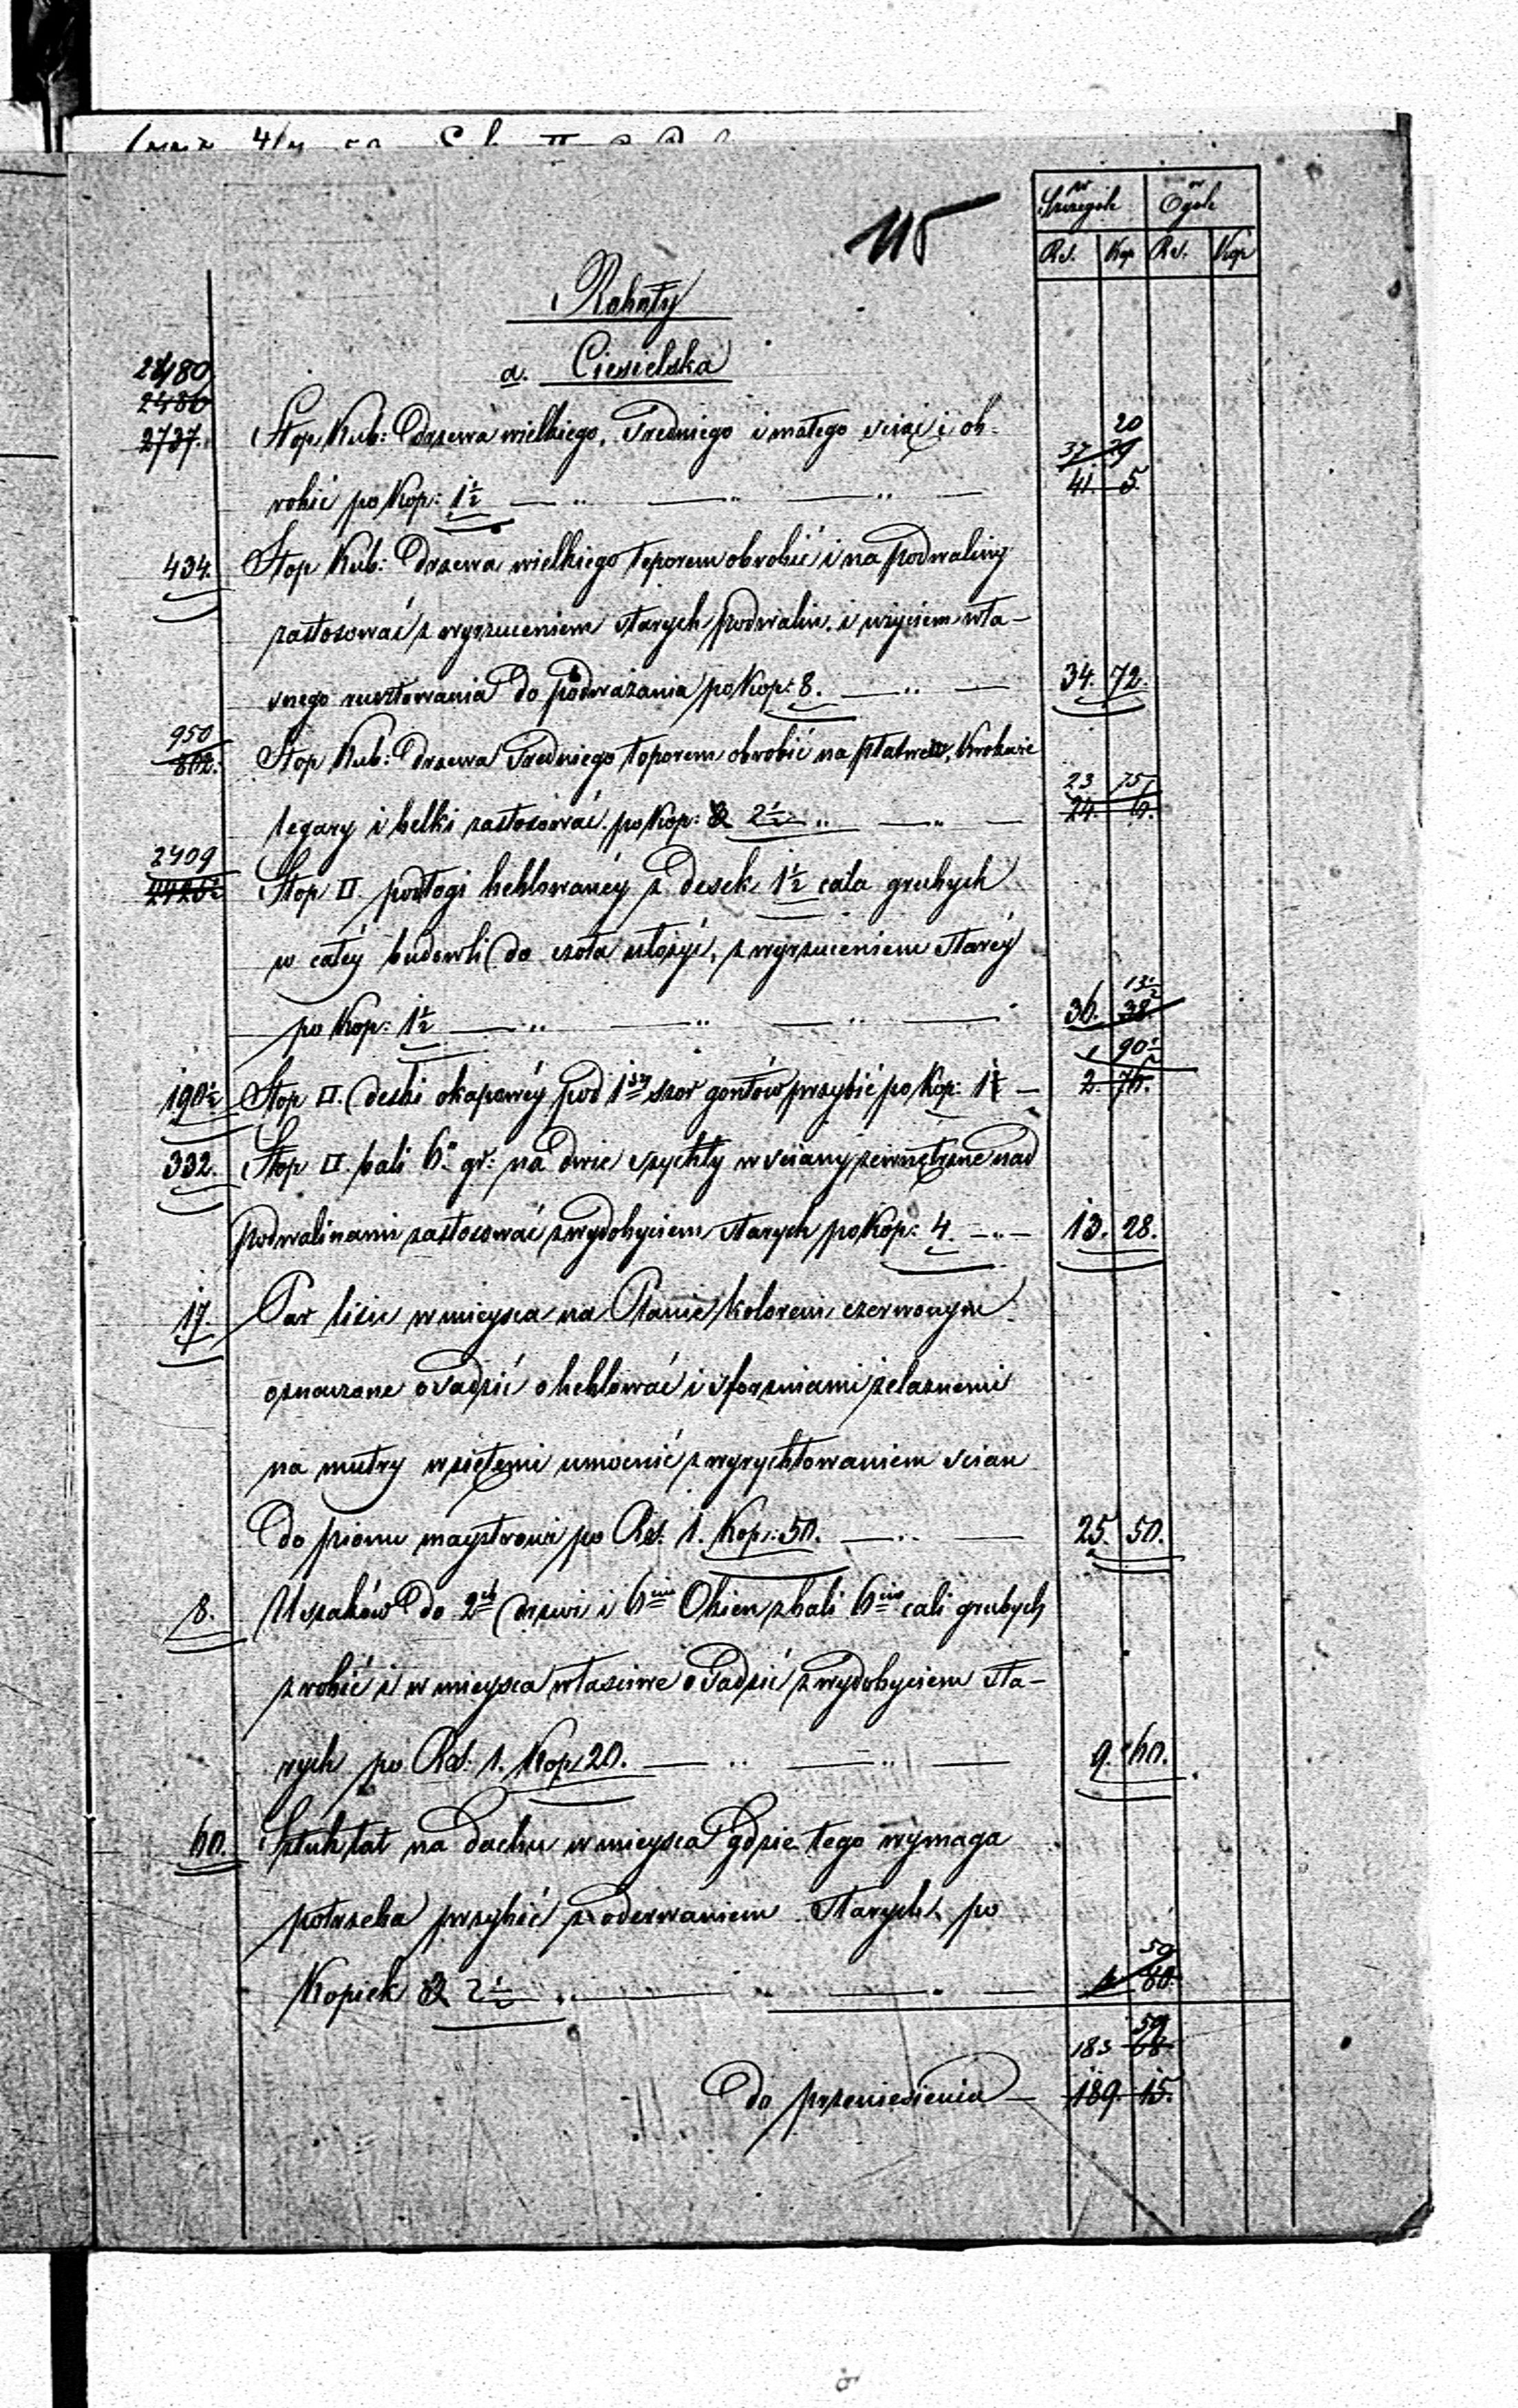 115
w Szczegole w Ogóle
Rs. Kop Rs. Kop
Roboty
a. Ciesielska
2480
2480
2737. Stop Kub: drzewa wielkiego, średniego i małego ściąć i ob- 20
37 29
robić po Kop: 1½ — " — " — " — 41. 5.
434. Stop Kub: Drzewa wielkiego toporem obrobić i na podwaliny
zastosować z wyrzuceniem starych podwalin, i użyciem wła-
snego rusztowania do podważania po Kop: 8. — " — 34. 72.
950
802. Stop Kub: Drzewa średniego toporem obrobić na płatwie, Krokwie
23. 75
legary i belki zastosować po Kop: 2½ " — " — 24. 6.
2409
Stop □ podłogi heblowanéy z desek 1½ cala grubych
w całéy budowli do czoła ułożyć, z wyrzuceniem staréy
13½
po Kop: 1½ — " — " — " — 36. 38
1 90½
190½ Stop □. deski okapowéy pod 1szy szor gontów przybić po Kop: 1 — 2. 76.
332. Stop □ bali 6" gr: na dwie szychty w ściany zewnętrzne nad
podwalinami zastosować z wydobyciem starych po Kop: 4. — " — 13. 28.
17. Par lisic w mieysca na Planie kolorem czerwonym
oznaczone osadzić oheblować i sforzniami żelaznemi
na mutry wziętemi umocnić z wyrychtowaniem ścian
do pionu maystrowi po Rs. 1. Kop: 50. — " — 25. 50.
8. Uszaków do 2ch drzwi i 6ciu Okien z bali 6cio cali grubych
zrobić i w mieysca właściwe osadzić z wydobyciem sta-
rych po Rs. 1. Kop 20. — " — " — 9. 60.
60. Sztuk łat na dachu w mieysca gdzie tego wymaga
potrzeba przybić z oderwaniem starych po
50
Kopiek 2½ " — " — 1 80.
59
183 68
do przeniesienia — 189. 15.